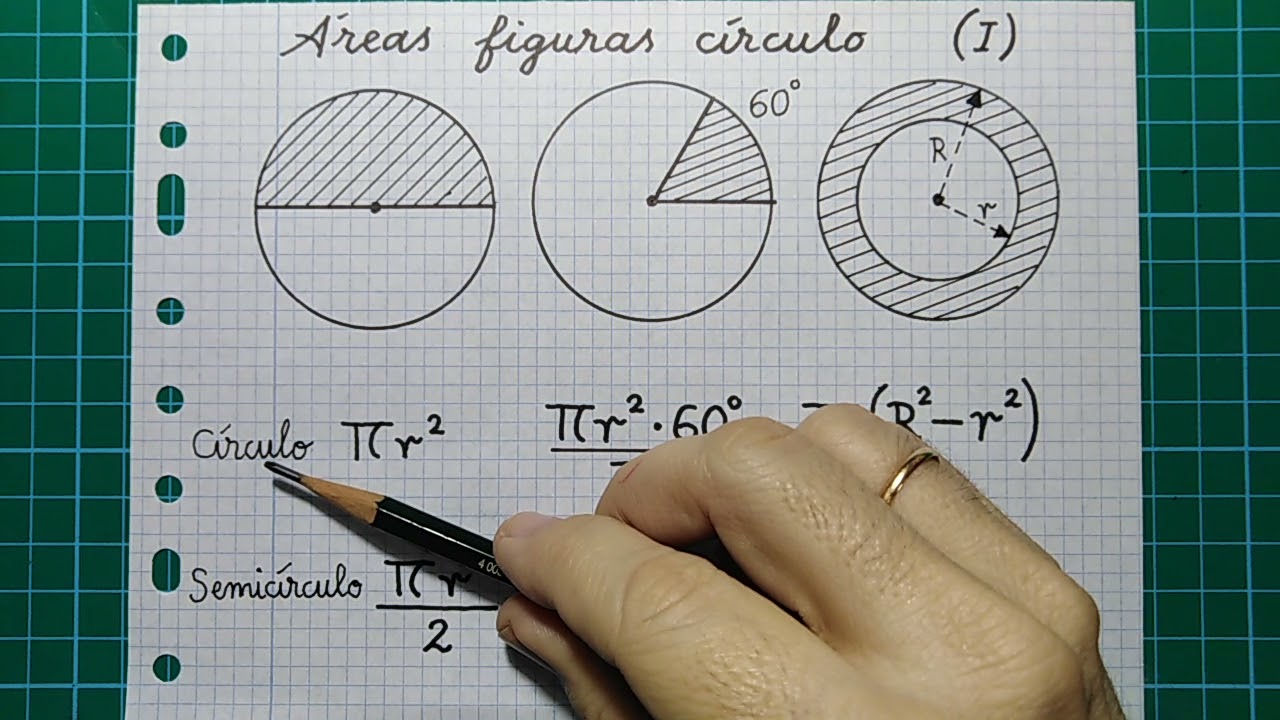 Áreas figuras círculo (I)
60°
R
r
Círculo πr²
πr²·60°
(R²-r²)
Semicírculo πr
2